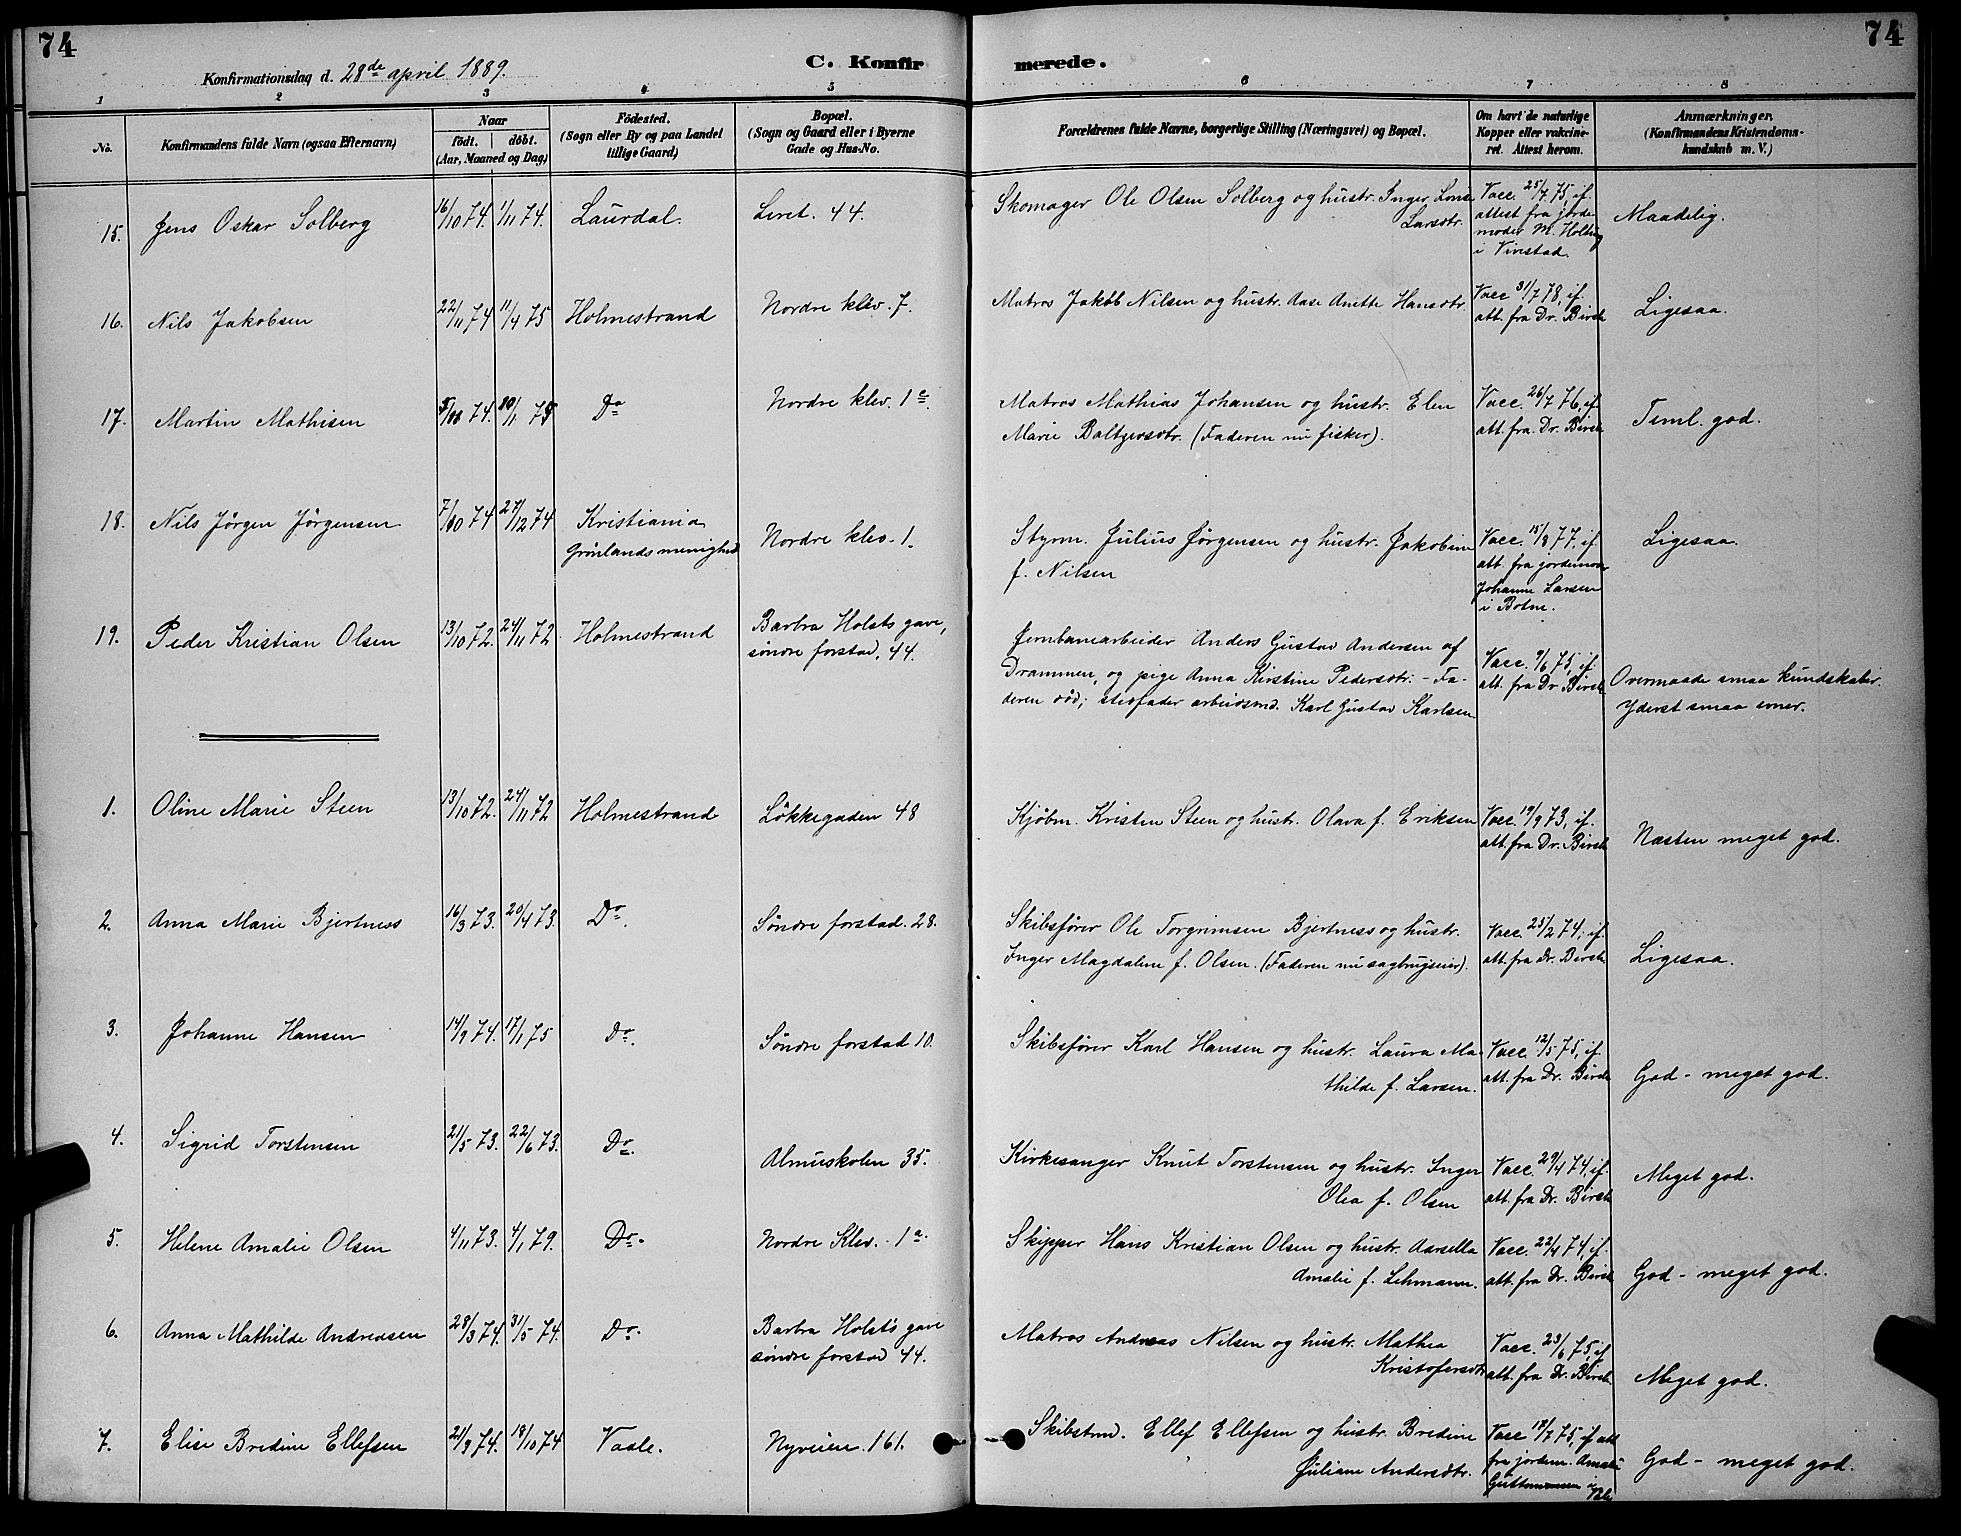 74
74
Konfirmationsdag d. 28de april 1889.
C. Konfir
merede.
1 2 3 4 5 6 7 8
No.
Konfirmandens fulde Navn (ogsaa Efternavn)
Naar
födt. döbt.
(Aar, Maaned og Dag)
Födested.
(Sogn eller By og paa Landet
tillige Gaard)
Bopæl.
(Sogn og Gaard eller i Byerne
Gade og Hus-No.
Forældrenes fulde Navne, borgerlige Stilling (Næringsvei) og Bopæl.
Om havt de naturlige
Kopper eller vakcine-
ret. Attest herom.
Anmærkninger.
(Konfirmandens Kristendoms-
kundskab m. V.)
15. Jens Oskar Solberg 16/10 74. 1/11 74. Laurdal. Livet. 44.
Skomager Ole Olsen Solberg og hustr. Inger Lovise
Larsdtr.
Vacc. 25/7 75, if.
attest fra jorde
moder M. Holting
i Vivestad.
Maadelig.
16. Nils Jakobsen 22/11 74 11/4 75 Holmestrand Nordre klev. 7.
Matros Jakob Nilsen og hustr. Aase Anette Hansdtr.
Vacc 31/7 78, if.
att. fra Dr. Birch
Ligesaa.
17. Martin Mathisen 5/10 74. 10/1 75 Do Nordre klev. 1c.
Matros Mathias Johansen og hustr. Elen
Marie Baltzersdtr. (Faderen nu fisker).
Vacc. 26/7 76, if.
att. fra. Dr. Birch
Teml. god.
18. Nils Jörgen Jörgensen 7/10 74 27/12 74 Kristiania
Grönlands menighed
Nordre klev. 1.
Styrm. Julius Jörgensen og hustr. Jakobine
f. Nilsen
Vacc. 15/8 77, if.
att. fra gordemoder
Johanne Larsen
i Botne.
Ligesaa.
19. Peder Kristian Olsen 13/10 72. 24/11 72. Holmestrand
Barbra Holsts gave,
söndre forstad, 44.
Jernbanearbeider Anders Gustav Andersen af
Drammen, og pige Anna Kirstine Pedersdtr. - Fa-
deren död; stedfader arbeidsmd. Karl Gustav Karlsen
Vacc. 9/6 75, if.
att. fra Dr. Birch
Overmaade smaa kundskaber.
Yderst smaa evner.
1. Oline Marie Steen 13/10 72. 24/11 72 Holmestrand Lökkegaden 48
Kjöbm. Kristen Steen og hustr. Olava f. Eriksen
Vacc. 19/9 73, if.
att. fra Dr. Birch
Næsten meget god.
2. Anna Marie Bjertness 16/3 73. 20/4 73. Do. Söndre forstad. 28.
Skibsförer Ole Torgrimsen Bjertness og hustr.
Inger Magdalene f. Olsen. (Faderen nu sagbrugseier).
Vacc. 25/2 74, if.
att. fra Dr. Birch
Ligesaa.
3. Johanne Hansen 14/9 74. 17/1 75 Do. Söndre forstad 10.
Skibsförer Karl Hansen og hustr. Laura Ma-
thilde f. Larsen.
Vacc. 12/5 75, if.
att. fra Dr. Birch
God - meget god.
4. Sigrid Torstensen 21/5 73. 22/6 73. Do. Almueskolen 35.
Kirkesanger Knut Torstensen og hustr. Inger
Olea f. Olsen
Vacc. 29/4 74, if.
att. fra Dr. Birch
Meget god.
5. Helene Amalie Olsen 4/11 73. 4/1 79. Do. Nordre Klev. - 1a.
Skipper Hans Kristian Olsen og hustr. Aarsella
Amalie f. Lehmann.
Vacc. 22/4 74, if.
att. fra Dr. Birch
God - meget god.
6. Anna Mathilde Andreasen 28/3 74. 31/5 74. Do.
Barbra Holsts gave
söndre forstad 44.
Matros Andreas Nilsen og hustr. Mathea
Kristofersdtr.
Vacc. 23/6 75, if
att. fra Dr. Birch
Meget god.
7. Elise Bredine Ellefsen 21/9 74. 18/10 74 Vaale. Nyveien. 161.
Skibstmd. Ellef Ellefsen og hustr. Bredine
Juliane Andersdtr.
Vacc 17/7 75, if att
fra jordem. Amalie
i Vale
God - meget god.